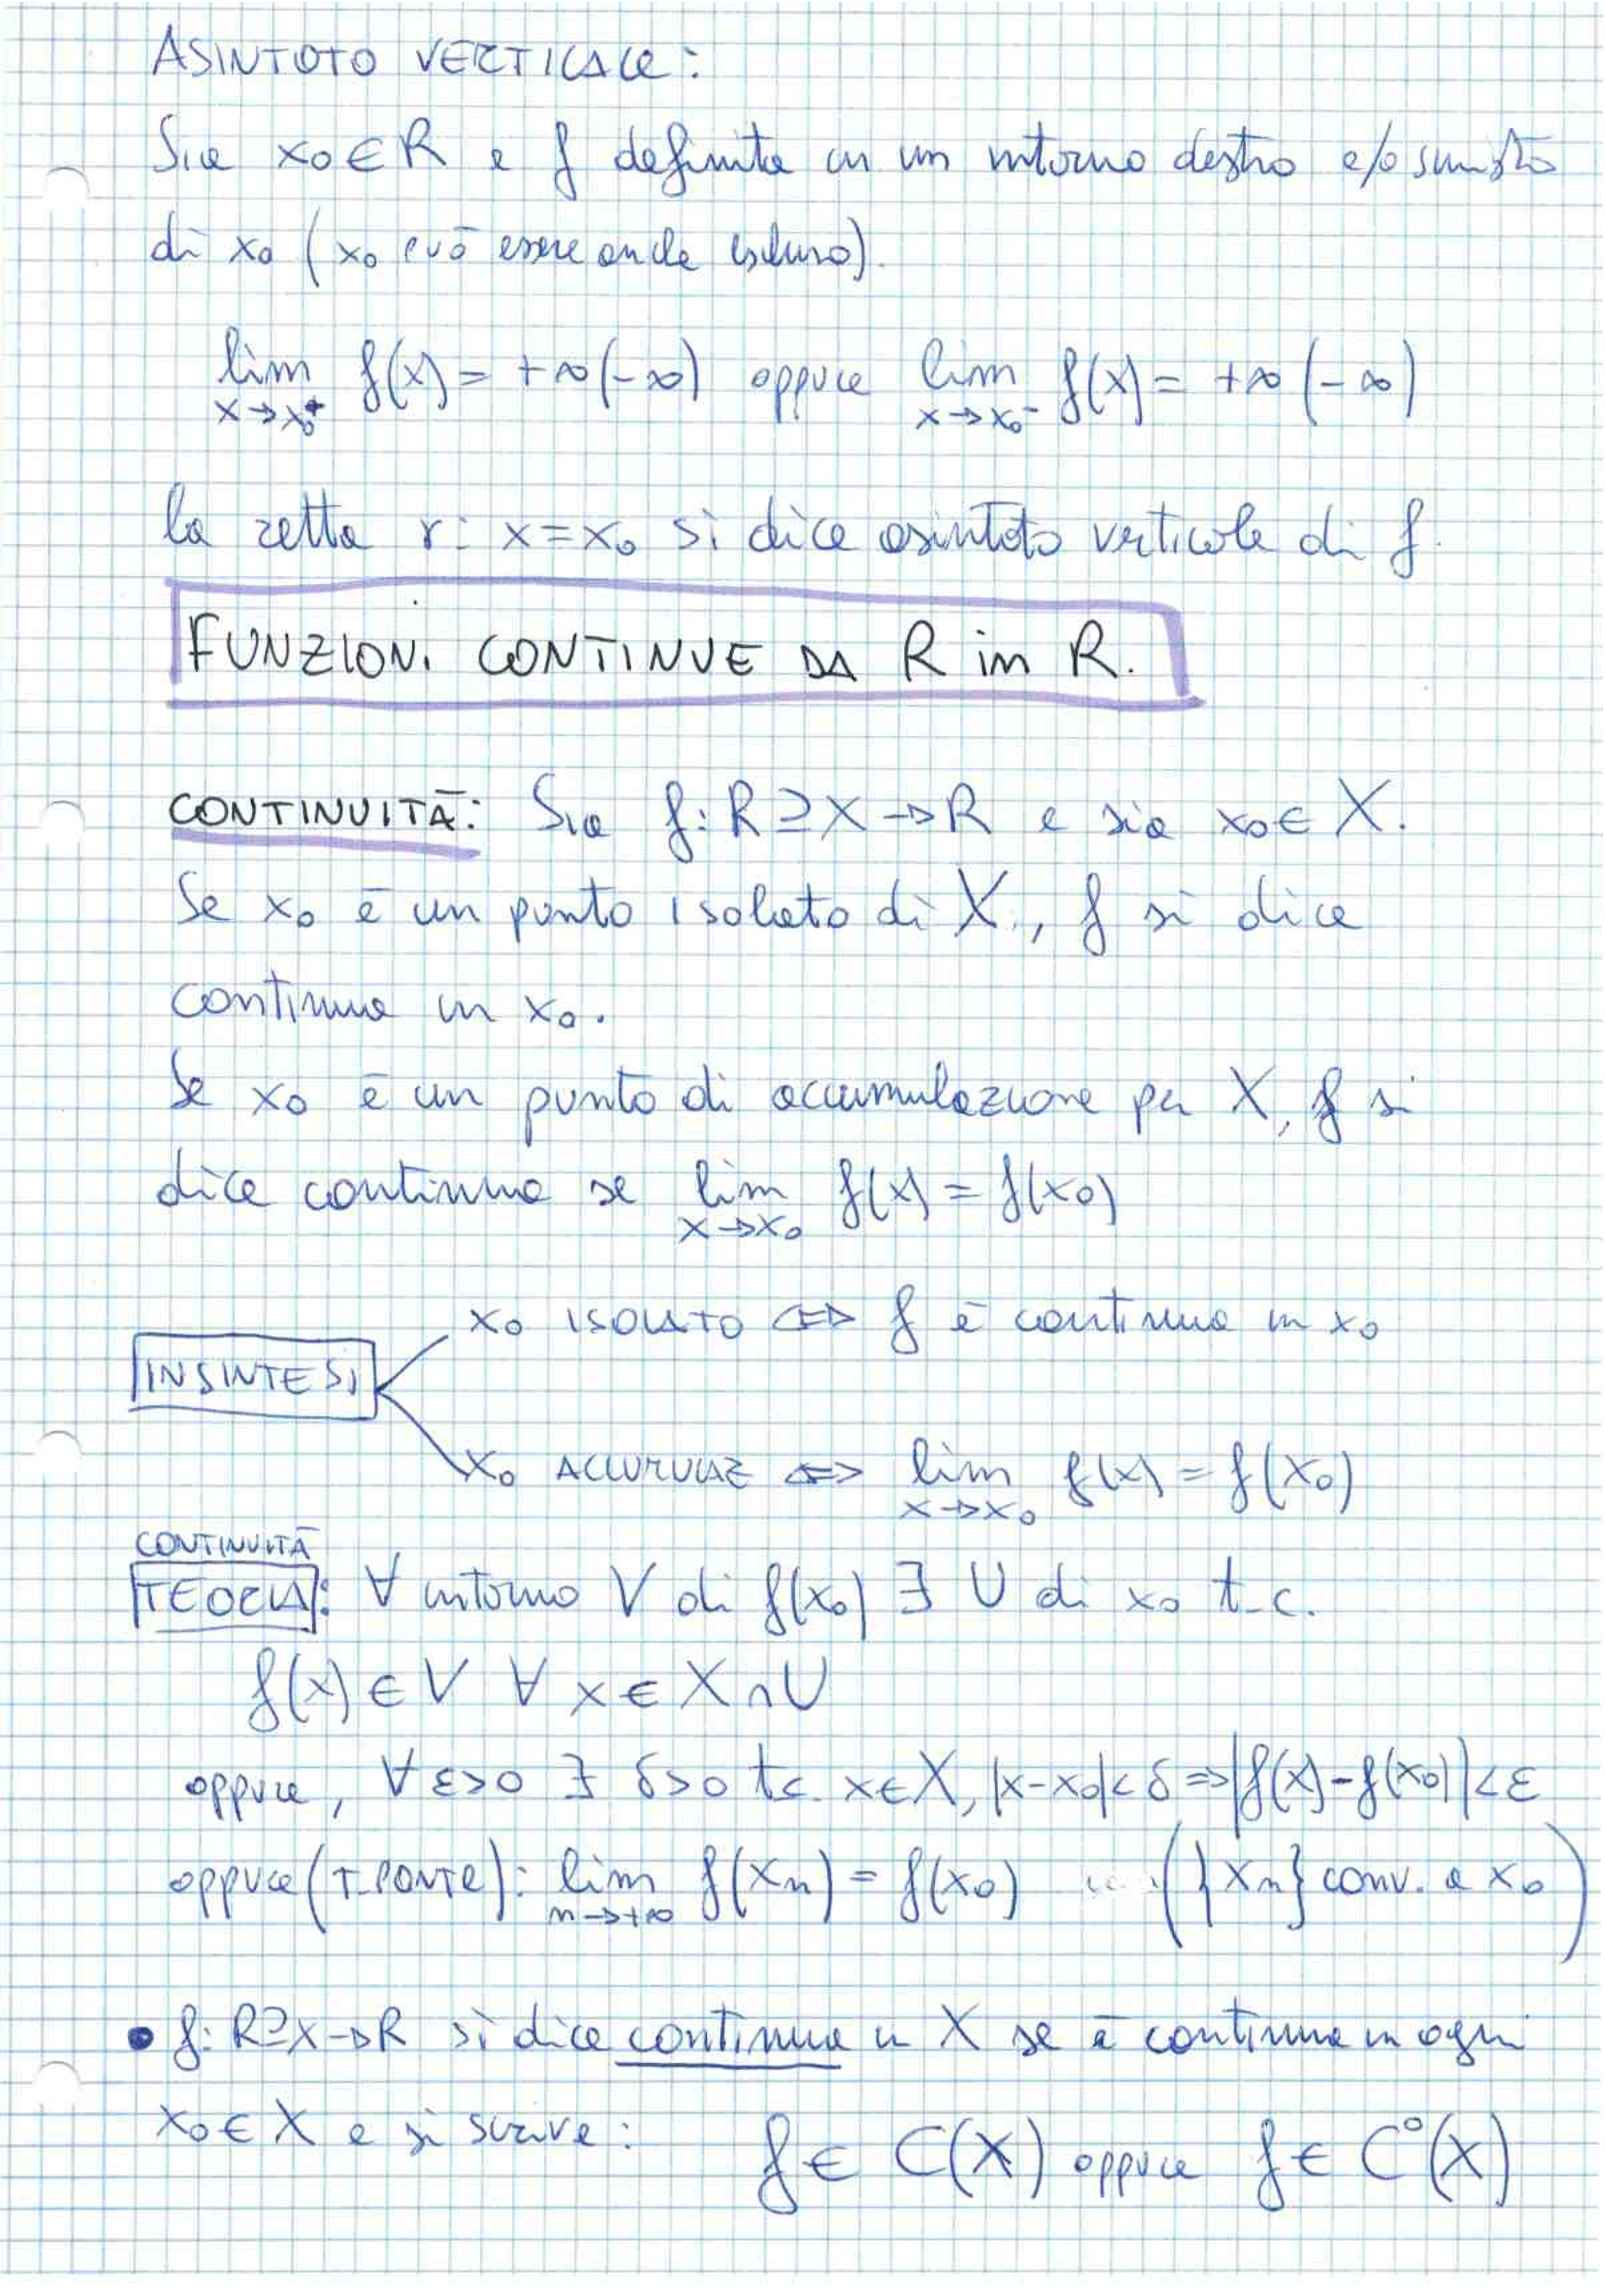 ASINTOTO VERTICALE:
Sia x₀ ∈ R e f definita in un intorno destro e/o sinistro
di x₀ (x₀ può essere anche escluso).
lim x→x₀⁺ f(x) = +∞ (-∞) oppure lim x→x₀⁻ f(x) = +∞ (-∞)
la retta r: x = x₀ si dice asintoto verticale di f.
FUNZIONI CONTINUE DA R in R.
CONTINUITÀ: Sia f: R ⊇ X → R e sia x₀ ∈ X.
Se x₀ è un punto isolato di X, f si dice
continua in x₀.
Se x₀ è un punto di accumulazione per X, f si
dice continua se lim x→x₀ f(x) = f(x₀)
x₀ ISOLATO ⇔ f è continua in x₀
IN SINTESI
x₀ ACCUMULAZ ⇔ lim x→x₀ f(x) = f(x₀)
CONTINUITÀ
TEORIA: ∀ intorno V di f(x₀) ∃ U di x₀ t.c.
f(x) ∈ V ∀ x ∈ X ∩ U
oppure, ∀ ε>0 ∃ δ>0 t.c. x ∈ X, |x-x₀| < δ ⇒ |f(x) - f(x₀)| < ε
oppure (T. PONTE): lim n→+∞ f(xₙ) = f(x₀) ({xₙ} conv. a x₀)
• f: R ⊇ X → R si dice continua in X se è continua in ogni
x₀ ∈ X e si scrive: f ∈ C(X) oppure f ∈ C⁰(X)